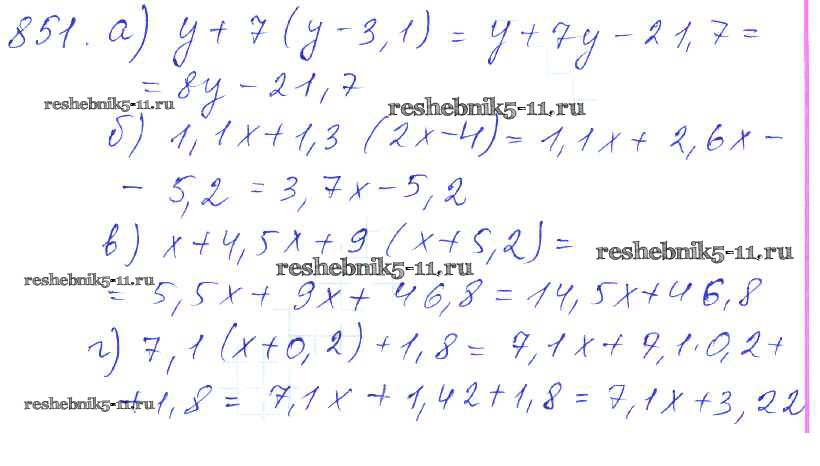 851. а) y + 7 (y - 3,1) = y + 7y - 21,7 =
= 8y - 21,7
reshebnik5-11.ru
reshebnik5-11.ru
б) 1,1x + 1,3 (2x - 4) = 1,1x + 2,6x -
- 5,2 = 3,7x - 5,2
в) x + 4,5x + 9 (x + 5,2) =
reshebnik5-11.ru
reshebnik5-11.ru
reshebnik5-11.ru
= 5,5x + 9x + 46,8 = 14,5x + 46,8
г) 7,1 (x + 0,2) + 1,8 = 7,1x + 7,1·0,2 +
+ 1,8 = 7,1x + 1,42 + 1,8 = 7,1x + 3,22
reshebnik5-11.ru